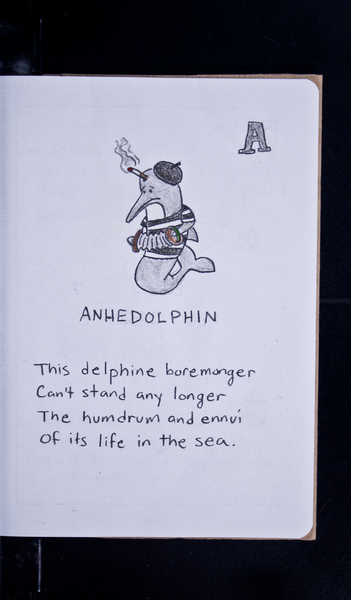 A
ANHEDOLPHIN
This delphine boremonger
Can't stand any longer
The humdrum and ennui
Of its life in the sea.